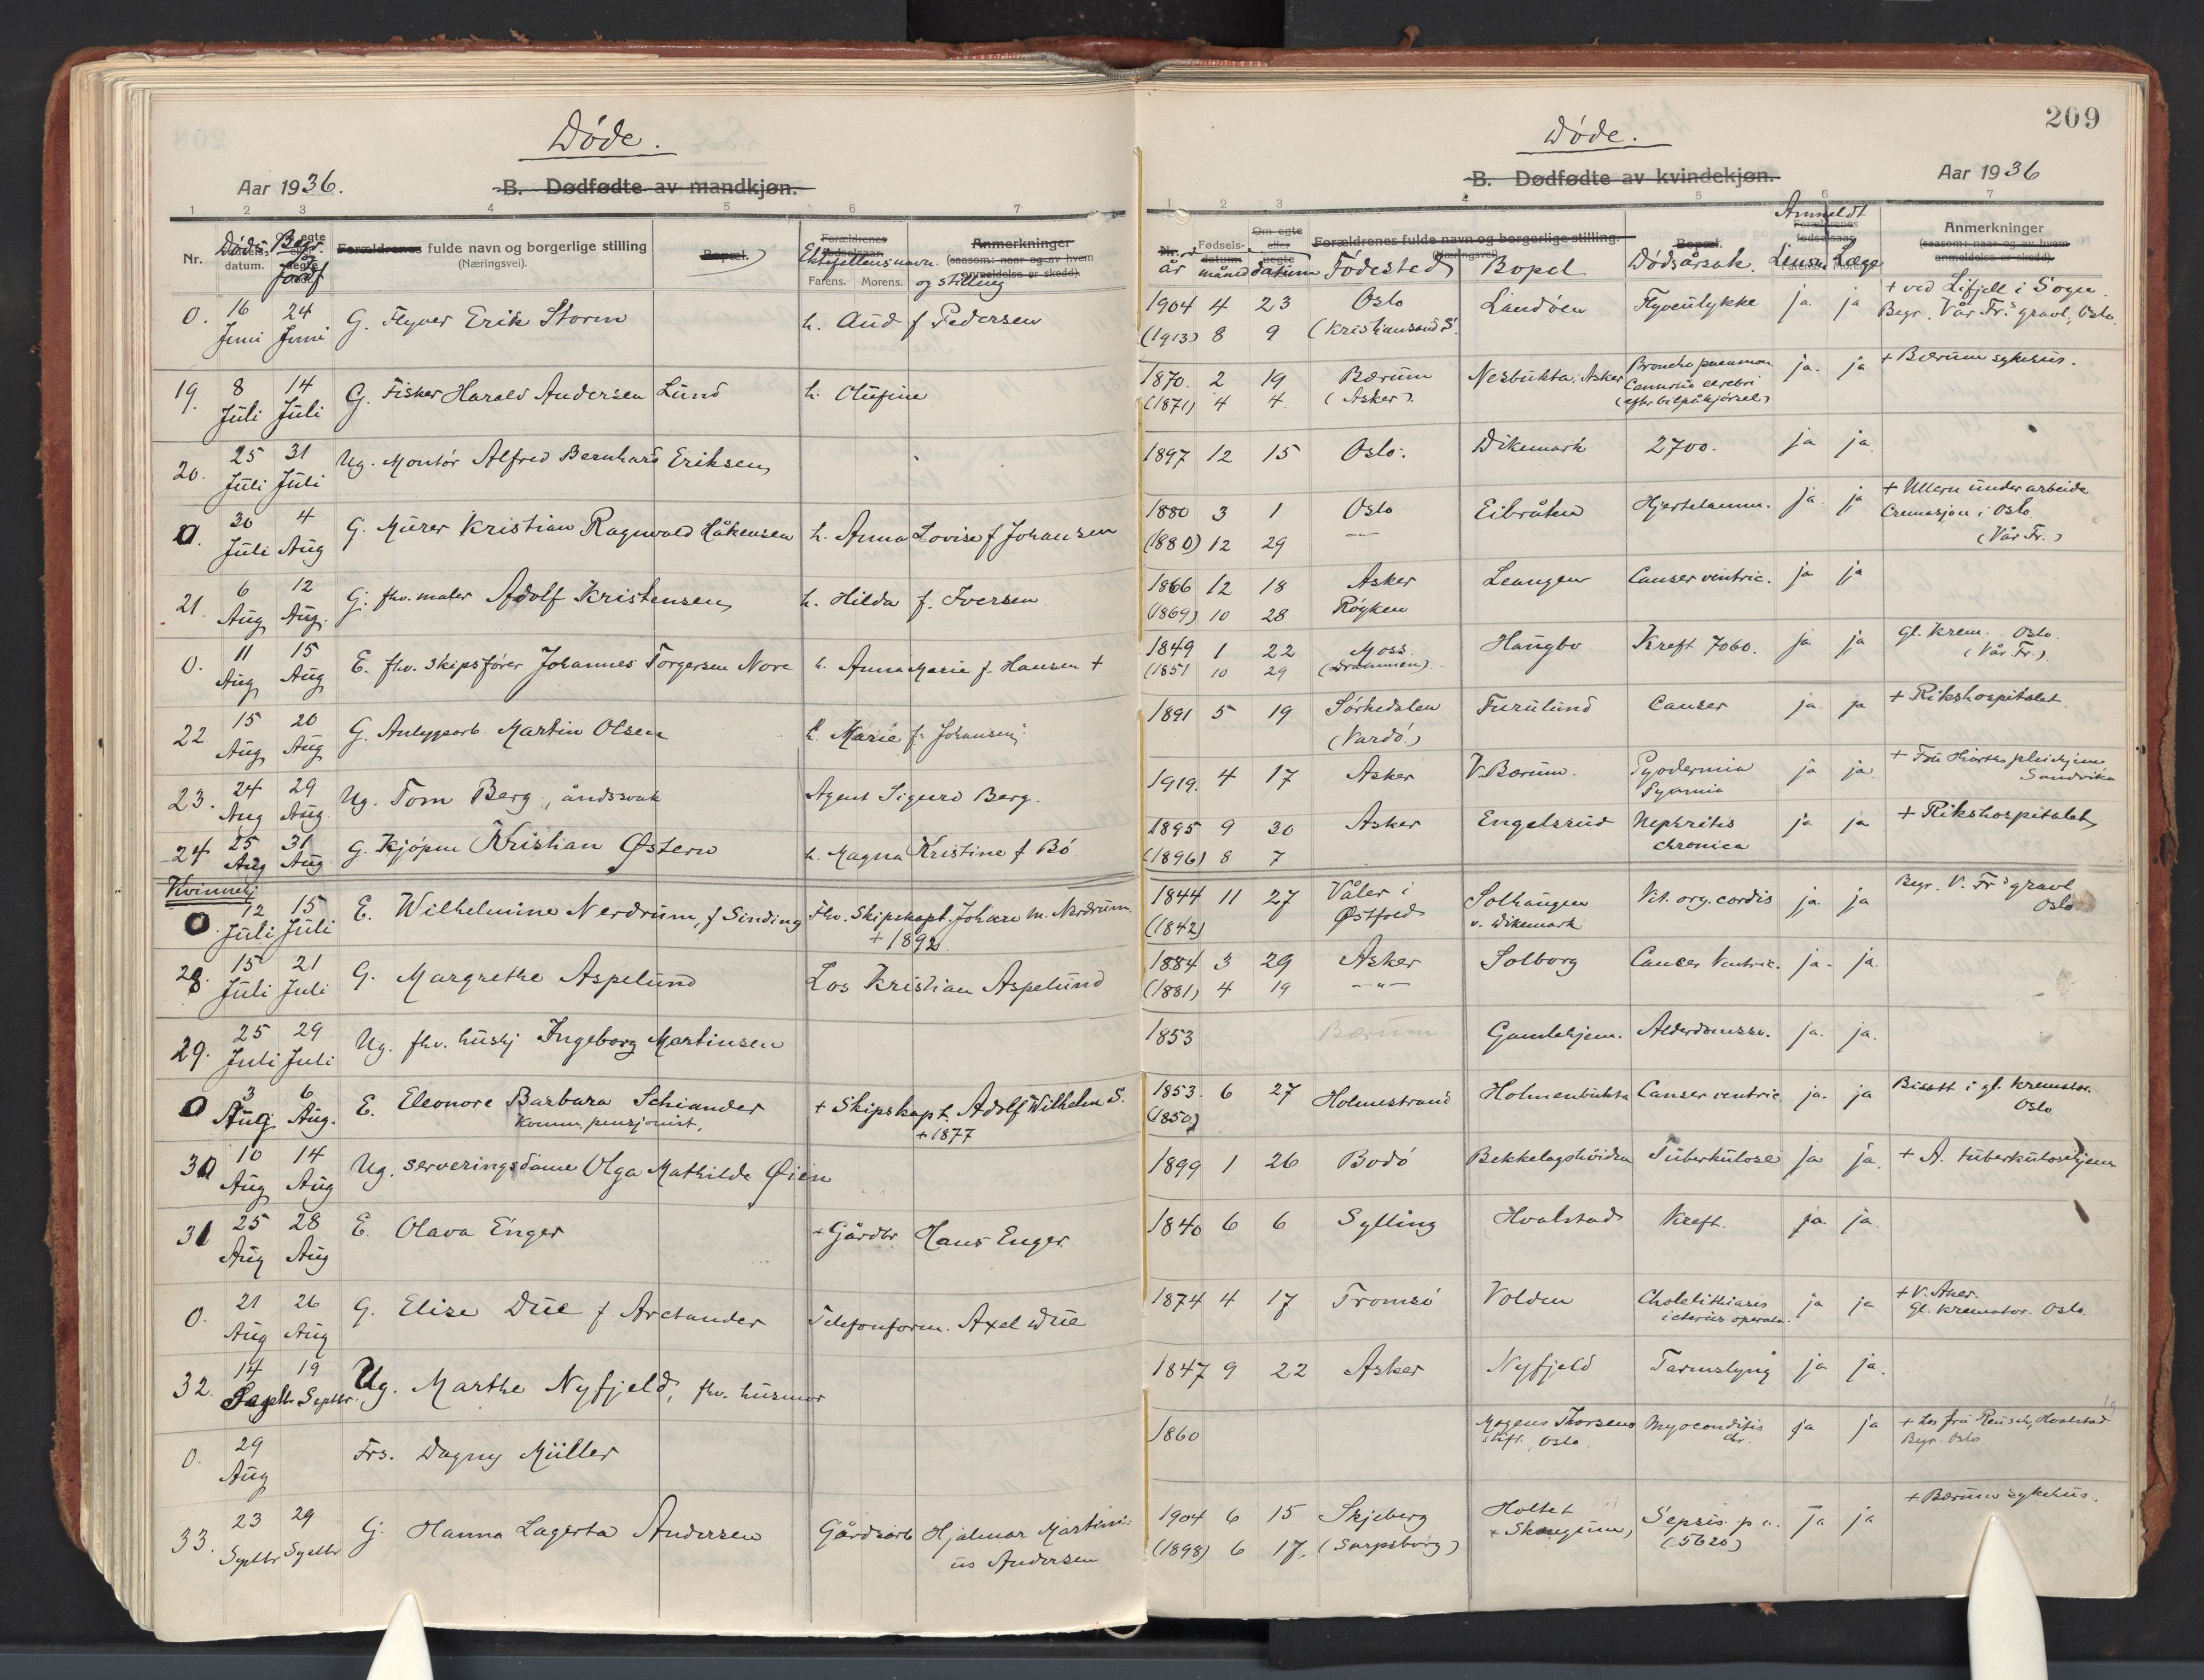 209
Døde.
Døde.
Aar 1936.
B. Dødfødte av mandkjøn.
B. Dødfødte av kvindekjøn.
Aar 1936
1 2 3 4 5 6 7
1 2 3 4 5 6 7
Nr. Døds- datum. Begr. Jordf Forældrenes fulde navn og borgerlige stilling (Næringsvei). Bopæl. Ektefellens navn og stilling Farens. Morens. Anmerkninger (saasom: naar og av hvem anmeldelse er skedd).
år måned datum Forældrenes fulde navn og borgerlige stilling. Fødested Bopel Dødsårsak. Anmeldt Lensm. Læge Anmerkninger (saasom: naar og av hvem anmeldelse er skedd).
0. 16 Juni 24 Juni G. Flyver Erik Storm h. Aud f Pedersen 1904 4 23 Oslo Landøen Flyveulykke ja ja + ved Lifjell i Sogn.
(1913) 8 9 (Kristiansand S. Begr. Vår Fr.s gravl., Oslo.
19. 8 Juli 14 Juli G. Fisker Harald Andersen Lund h. Olufine 1870. 2 19 Bærum Nesbukta, Asker Broncho pneumon. ja. ja + Bærum sykehus.
(1871) 4 4. (Asker). cerebri (efter bilpåkjørsel)
20. 25 Juli 31 Juli Ug. Montør Alfred Bernhard Eriksen 1897 12 15 Oslo. Dikemark 2700. ja ja
0. 30 Juli 4 Aug G. Murer Kristian Ragnvald Håkensen h. Anna Lovise f Johansen 1880 3 1 Oslo Eibråten Hjertelamm. ja ja + Ullern under arbeide
(1880) 12 29 — Cremasjon i Oslo (Vår Fr.)
21. 6 Aug 12 Aug. G. fhv. maler Adolf Kristensen h. Hilda f. Iversen 1866 12 18 Asker Leangen Canser ventric. ja ja
(1869) 10 28 Røyken
0. 11 Aug 15 Aug E. fhv. Skipsfører Johannes Torgersen Nore h. Anna Marie f. Hansen + 1849 1 22 Moss. Haugbo Kreft 7060. ja ja Gl. Krem. Oslo.
(1851 10 29 (Drammen). (Vår Fr.)
22 15 Aug 20 Aug G. Anlggsarb Martin Olsen h. Marie f. Johansen 1891 5 19 Sørkedalen Furulund Canser ja ja + Rikshospitalet
(Vardø.)
23. 24 Aug 29 Aug. Ug. Tom Berg, åndssvak Agent Sigurd Berg. 1919. 4 17 Asker V. Bærum. Pyodermia ja ja + Fru pleiehjem, Sandvika
24 25 Aug 31 Aug G. Kjøpm Kristian Østern h. Magna Kristine f Bö 1895 9 30 Asker Engelsrud Nephritis chronica ja ja + Rikshospitalet
(1896) 8 7
Kvinnekj
0. 12 Juli 15 Juli E. Wilhelmine Nerdrum, f Sinding Fhv. Skipskapt. Johan M. Nerdrum. 1844 11 27 Våler i Solhaugen Vit. org. cordis ja ja Begr. V. Frs gravl
+ 1892. (1842) Østfold v. Dikemark Oslo
28. 15 Juli 21 Juli G. Margrethe Aspelund Los Kristian Aspelund 1884 3 29 Asker Solborg Canser Ventric. ja. ja.
(1881) 4 19 — " —
29. 25 Juli 29 Juli Ug. fhv. hushj Ingeborg Martinsen 1853 Bærum Gamlehjem. Alderdomssv. ja. ja.
0 3 Aug. 6 Aug. E. Eleonore Barbara Schiander + Skipskapt. Adolf Wilhelm S. 1853. 6 27 Holmestrand Holmenbukta Canser ventric ja. ja Bisatt i gl. kremator.
Komm. pensjonist. + 1877 (1850) Oslo
30 10 Aug 14 Aug Ug. serveringsdame Olga Mathilde Øien 1899 1 26 Bodö Bekkelagshöiden Tuberkulose ja ja. + A. tuberkulosehjem
31 25 Aug 28 Aug E. Olava Enger + Gårdbr Hans Enger 1840 6 6 Sylling Hvalstad Kreft. ja ja
0. 21 Aug 26 Aug G. Elise Due f. Arctander Telefonform. Axel Due 1874 4 17 Tromsö Volden Cholelithiases ja ja + V. Aker.
icterus operata. Gl. Kremator. Oslo
32. 14 Septbr 19 Septbr. Ug. Marthe Nyfjeld, fhv. husmor 1847 9 22 Asker Nyfjeld Tarmslyng ja ja.
0. 29 Aug Frs. Dagny Müller 1860 Mogens Thorsens stift. Oslo. Myoconditis chr. ja ja + hos fru Reusch, Hvalstad
Begr. Oslo
33. 23 Septbr 29 Septbr G. Hanna Lagerta Andersen Gårdsarb Hjalmar Martini- us Andersen 1904 6 15 Skjeberg Holtet Sepsis p. a. ja ja + Bærum sykehus.
(1898) 6 17. (Sarpsborg) x Skaugum (5620)